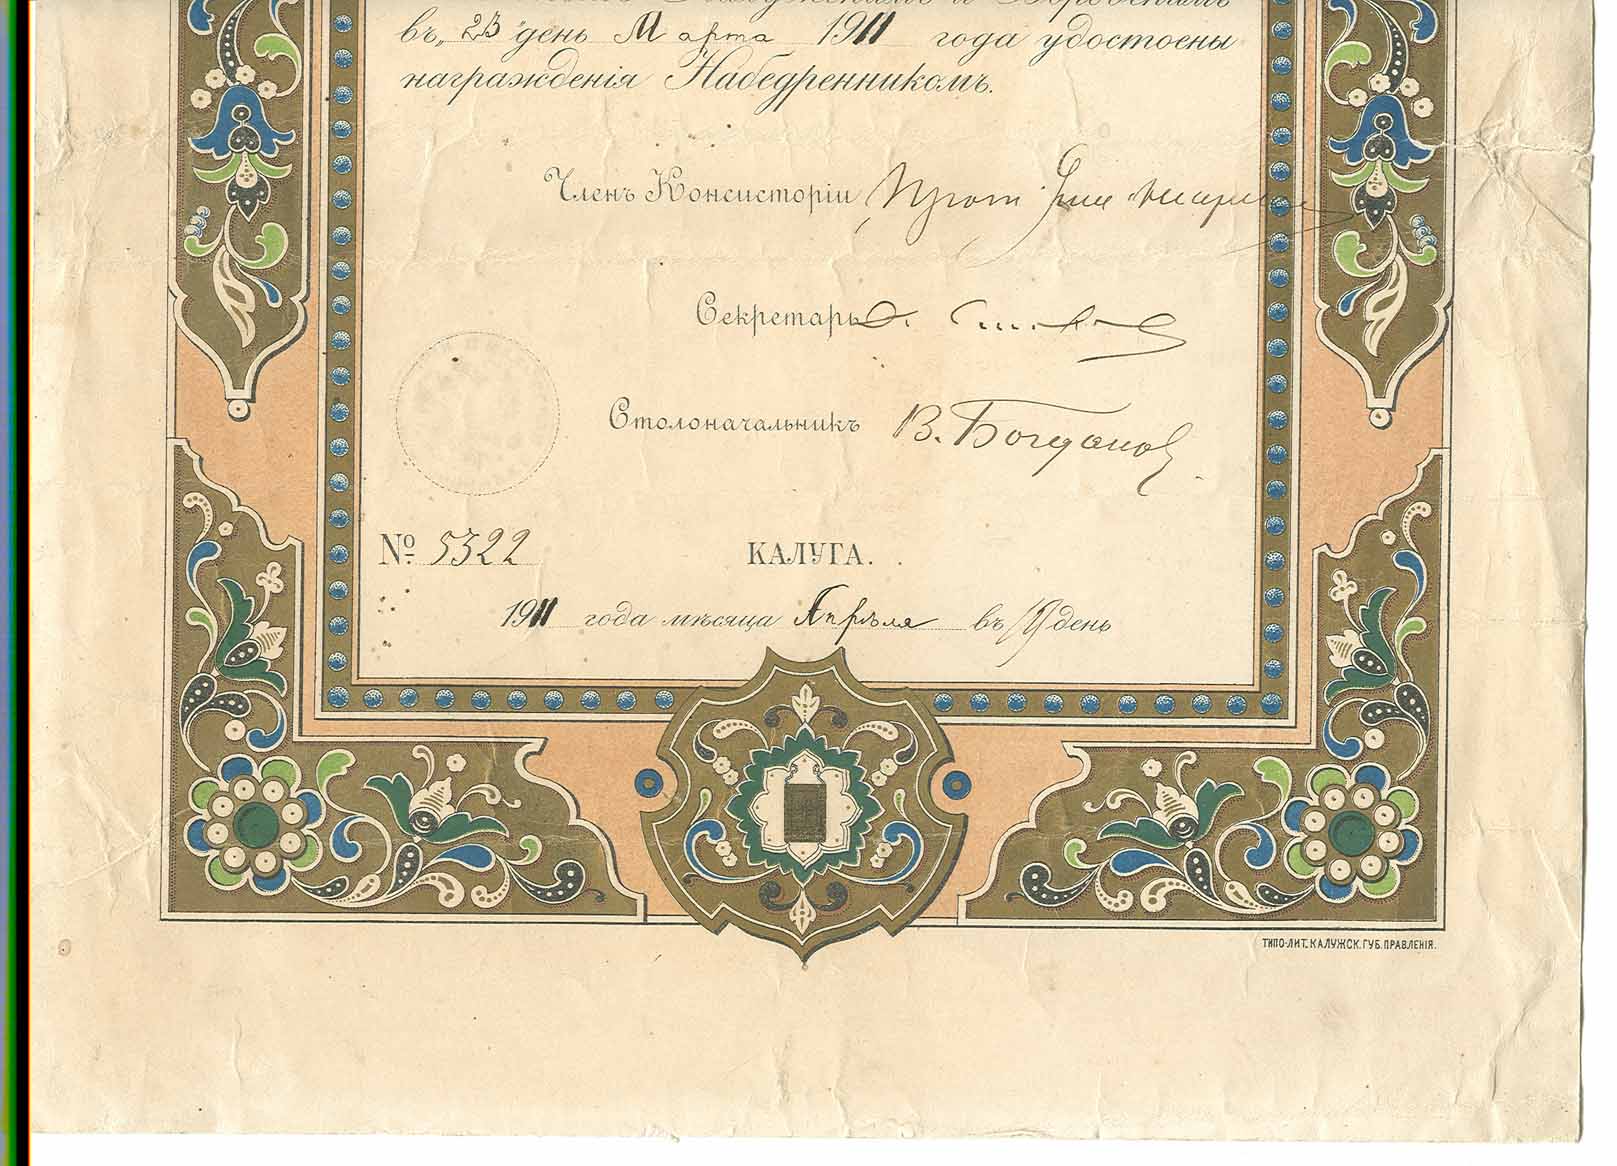 въ „23 день Марта 1911 года удостоены
награжденія Набедренникомъ.
Членъ Консисторіи Прот.
Секретарь
Столоначальникъ В. Богданов
№ 5322
КАЛУГА.
1911 года мѣсяца Апрѣля въ 19 день
ТИПО-ЛИТ. КАЛУЖСК. ГУБ. ПРАВЛЕНІЯ.